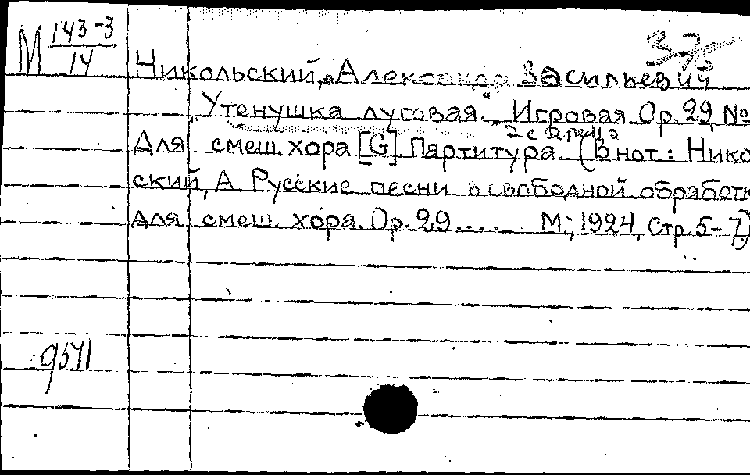 М 143-3
14
375
Никольский, Александр Васильевич
"Утенушка луговая." Игровая. Ор. 29, №
для смеш. хора [G] Партитура. (В нот.: Нико
ский, А. Русские песни в свободной обработк
для смеш. хора. Ор. 29 ..... М., 1924, Стр. 5-7)
9571